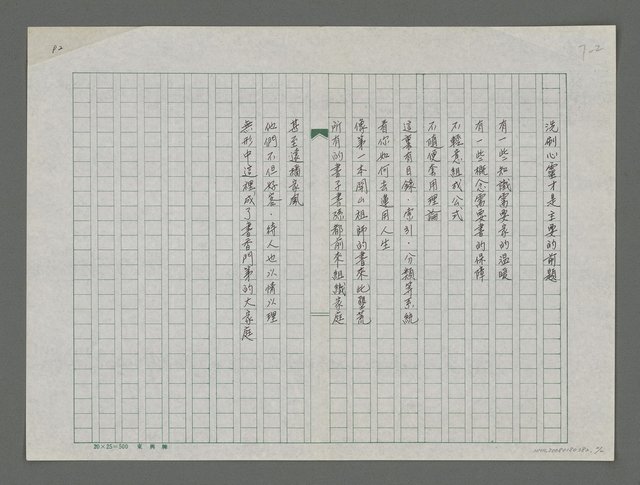 P2
7-2
洗刷心靈才是主要的前題
有一些知識需要家的溫暖
有一些概念需要書的保障
不輕意組成公式
不隨便套用理論
這裏有目錄．索引．分類等系統
看你如何去運用人生
像第一本開山祖師的書來此墾荒
所有的書子書孫都前來組織家庭
甚至遠播家風
他們不但好客．待人也以情以理
無形中這裡成了書香門第的大家庭
20×25=500